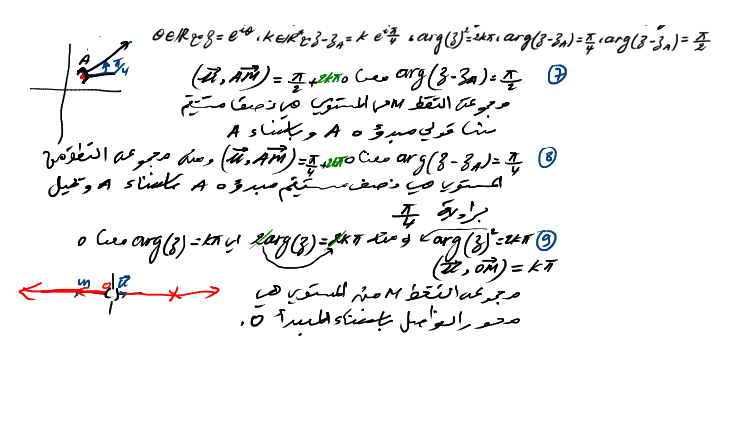 θ∈ℝ و z = e^{iθ} ، k∈ℝ*₊ و z-z_A = k e^{iπ/4} ، arg(z)² = 2kπ ، arg(z-z_A) = π/4 ، arg(z-z_A) = π/2
⑦ arg(z-z_A) = π/2 معناه (u⃗, AM⃗) = π/2 + 2kπ
مجموعة النقط M من المستوي هي نصف مستقيم
شاقولي مبدؤه A وباستثناء A
⑧ arg(z-z_A) = π/4 معناه (u⃗, AM⃗) = π/4 + 2kπ ومنه مجموعة النقط من
المستوي هي نصف مستقيم مبدؤه A باستثناء A وتميل
بزاوية π/4
⑨ arg(z)² = 2kπ ومنه 2arg(z) = 2kπ اي arg(z) = kπ معناه
(u⃗, OM⃗) = kπ
مجموعة النقط M من المستوي هي
محور الفواصل باستثناء المبدأ O.
A
π/4
M O u⃗